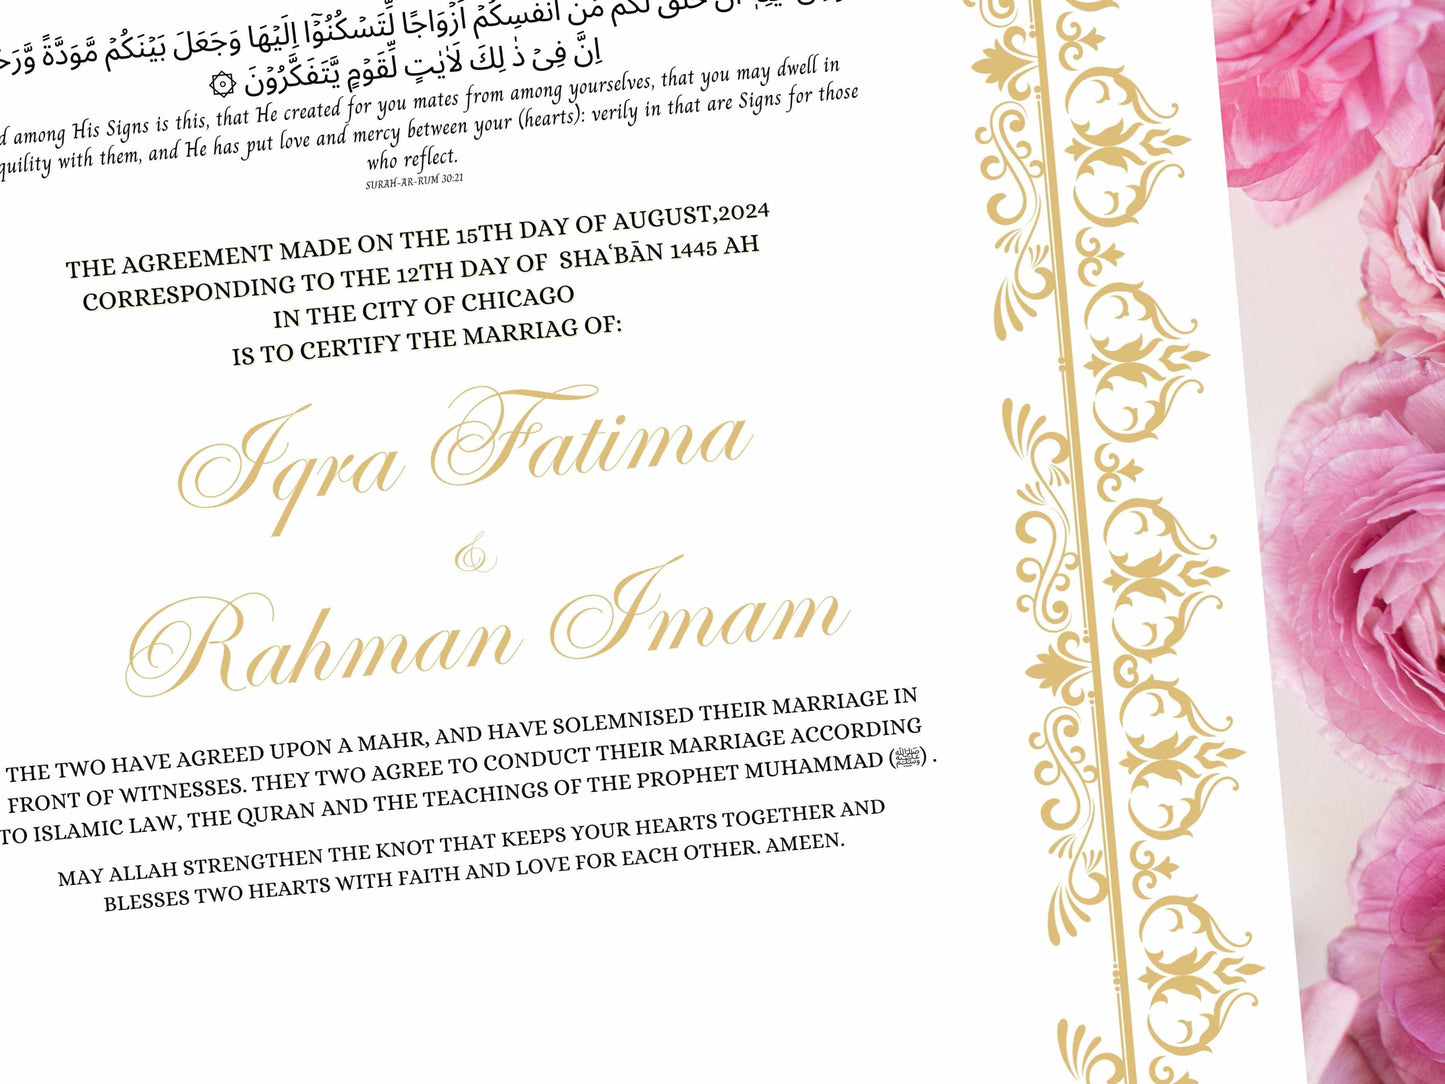 خَلَقَ لَكُمْ مِّنْ اَنْفُسِكُمْ اَزْوَاجًا لِّتَسْكُنُوْۤا اِلَيْهَا وَجَعَلَ بَيْنَكُمْ مَّوَدَّةً
اِنَّ فِيْ ذٰ لِكَ لَاٰيٰتٍ لِّقَوْمٍ يَّتَفَكَّرُوْنَ ۞
among His Signs is this, that He created for you mates from among yourselves, that you may dwell in
with them, and He has put love and mercy between your (hearts): verily in that are Signs for those
who reflect.
SURAH-AR-RUM 30:21
THE AGREEMENT MADE ON THE 15TH DAY OF AUGUST,2024
CORRESPONDING TO THE 12TH DAY OF SHAʿBĀN 1445 AH
IN THE CITY OF CHICAGO
IS TO CERTIFY THE MARRIAG OF:
Iqra Fatima
&
Rahman Imam
THE TWO HAVE AGREED UPON A MAHR, AND HAVE SOLEMNISED THEIR MARRIAGE IN
FRONT OF WITNESSES. THEY TWO AGREE TO CONDUCT THEIR MARRIAGE ACCORDING
TO ISLAMIC LAW, THE QURAN AND THE TEACHINGS OF THE PROPHET MUHAMMAD (ﷺ) .
MAY ALLAH STRENGTHEN THE KNOT THAT KEEPS YOUR HEARTS TOGETHER AND
BLESSES TWO HEARTS WITH FAITH AND LOVE FOR EACH OTHER. AMEEN.